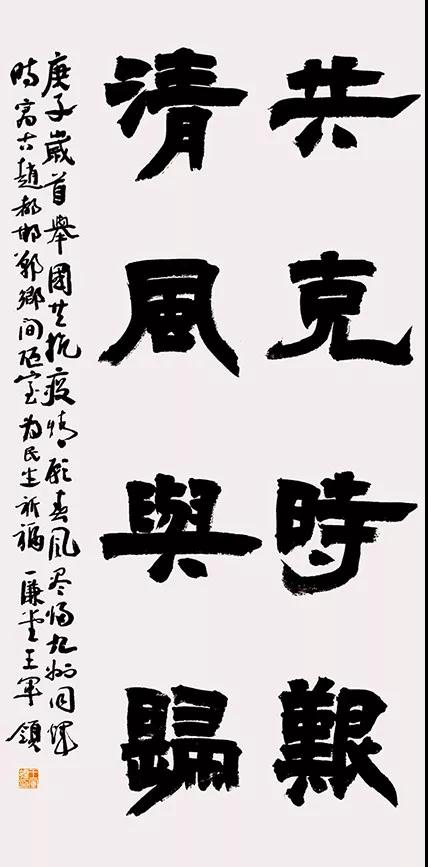 共克時艱
清風與歸
庚子歲首舉國共抗疫情願春風九州同輝
時寓古趙都邯鄲鄉間陋室為民生祈福一廉堂王軍領